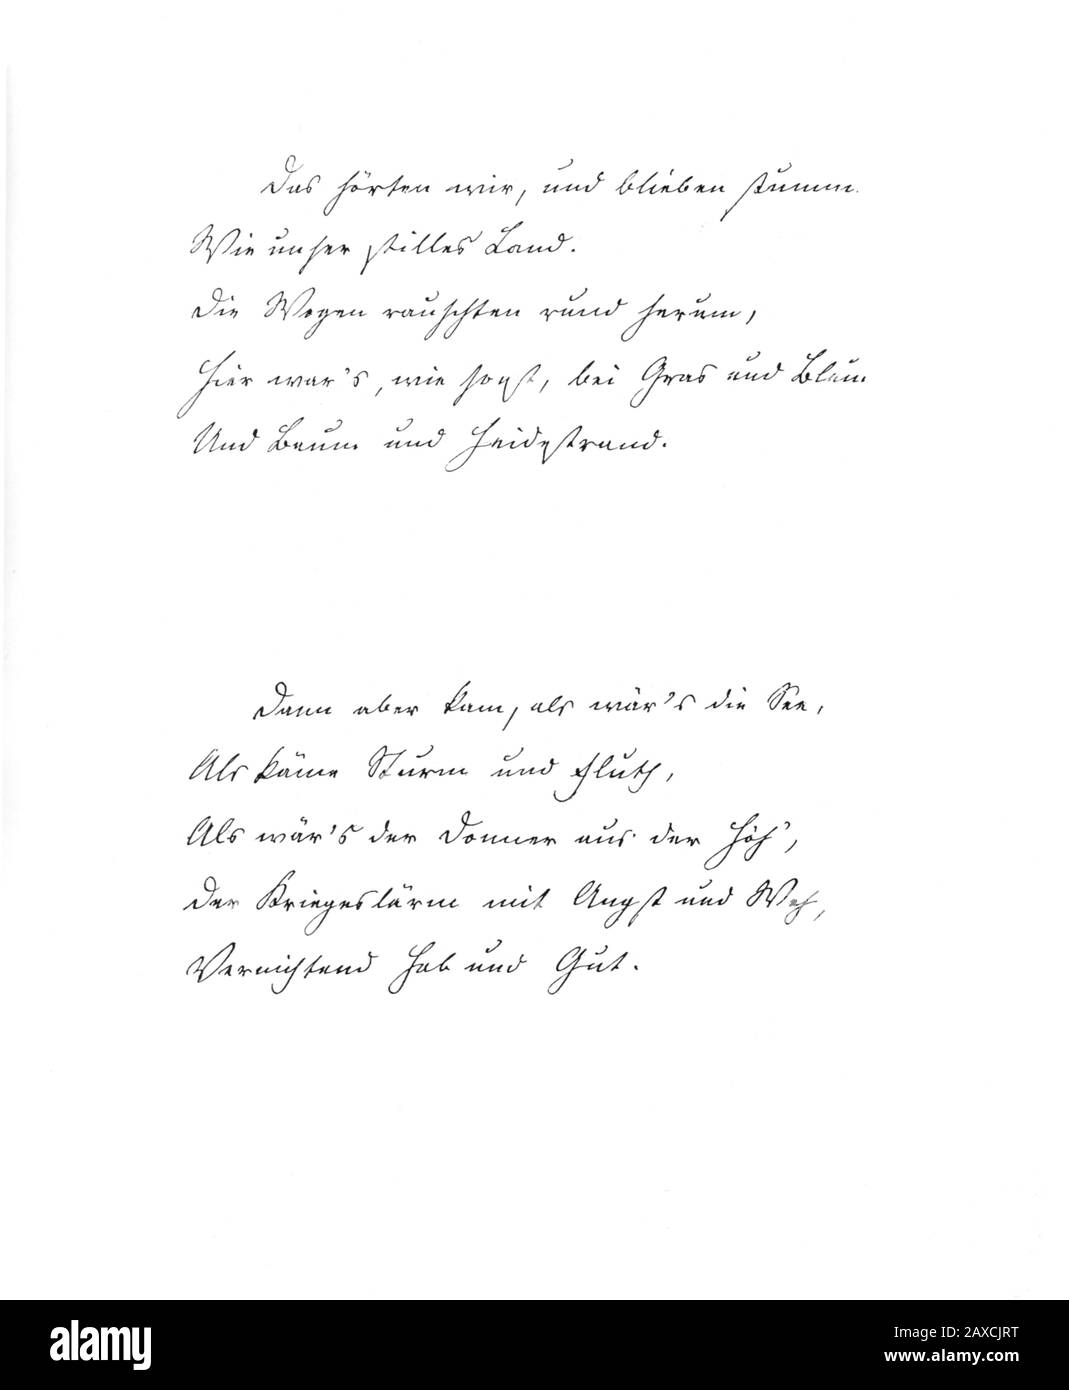 Das hörten wir, und blieben stumm.
Wie unser stilles Land.
Die Wogen rauschten rund herum,
Hier war's, wie sonst, bei Gras und Blum.
Und Baum und Heidestrand.
Dann aber kam, als wär's die See,
Als käme Sturm und Fluth,
Als wär's der Donner aus der Höh',
Der Kriegeslärm mit Angst und Weh,
Vernichtend Hab und Gut.
alamy
Image ID: 2AXCJRT
www.alamy.com